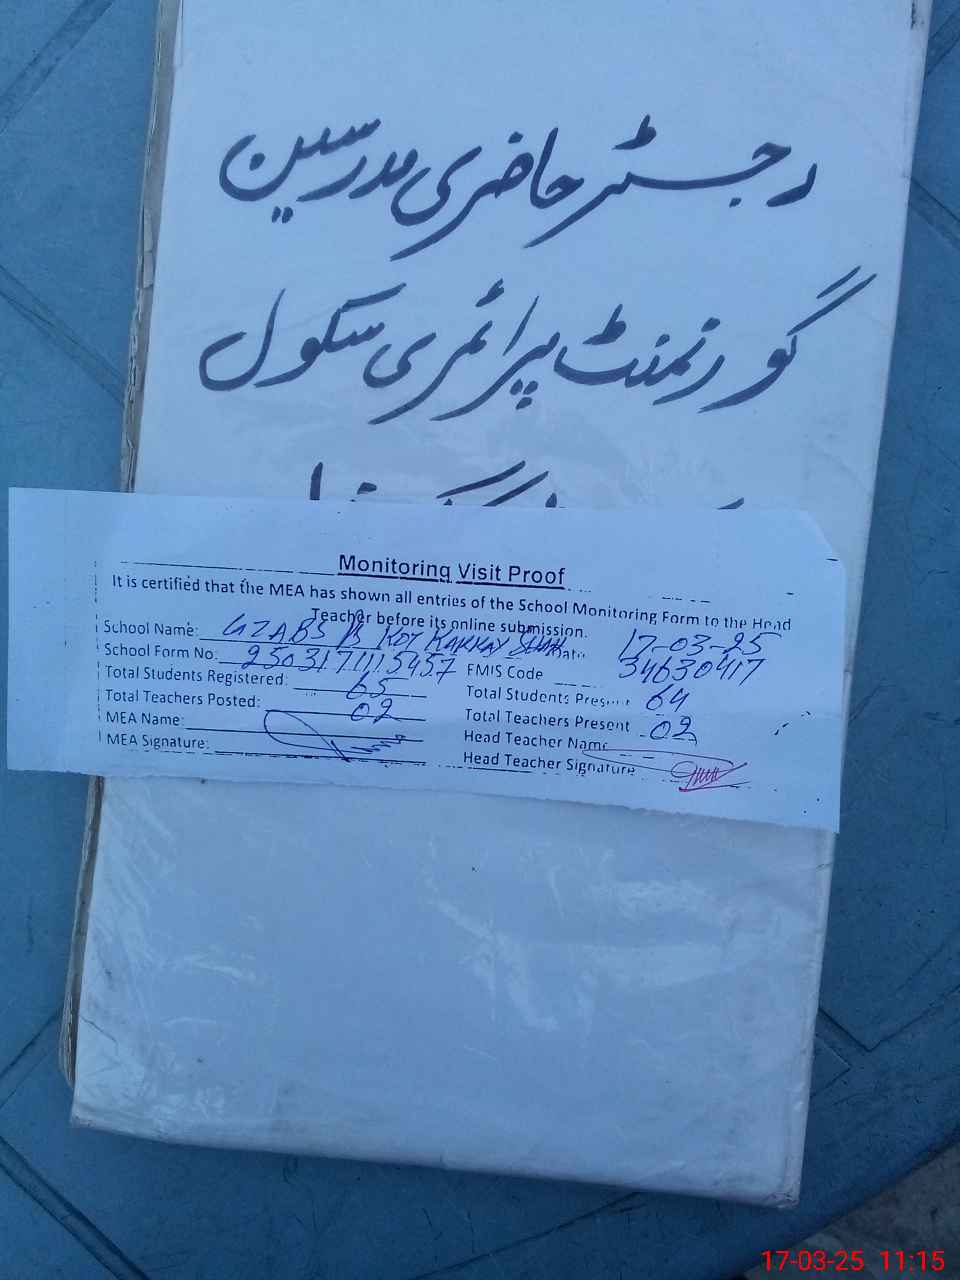 رجسٹر حاضری مدرسین
گورنمنٹ پرائمری سکول
Monitoring Visit Proof
It is certified that the MEA has shown all entries of the School Monitoring Form to the Head
Teacher before its online submission.
School Name: KOT Date: 17-03-25
School Form No: FMIS Code 34630417
Total Students Registered: 65 Total Students Present 64
Total Teachers Posted: 02 Total Teachers Present 02
MEA Name: Head Teacher Name
MEA Signature: Head Teacher Signature
17-03-25 11:15